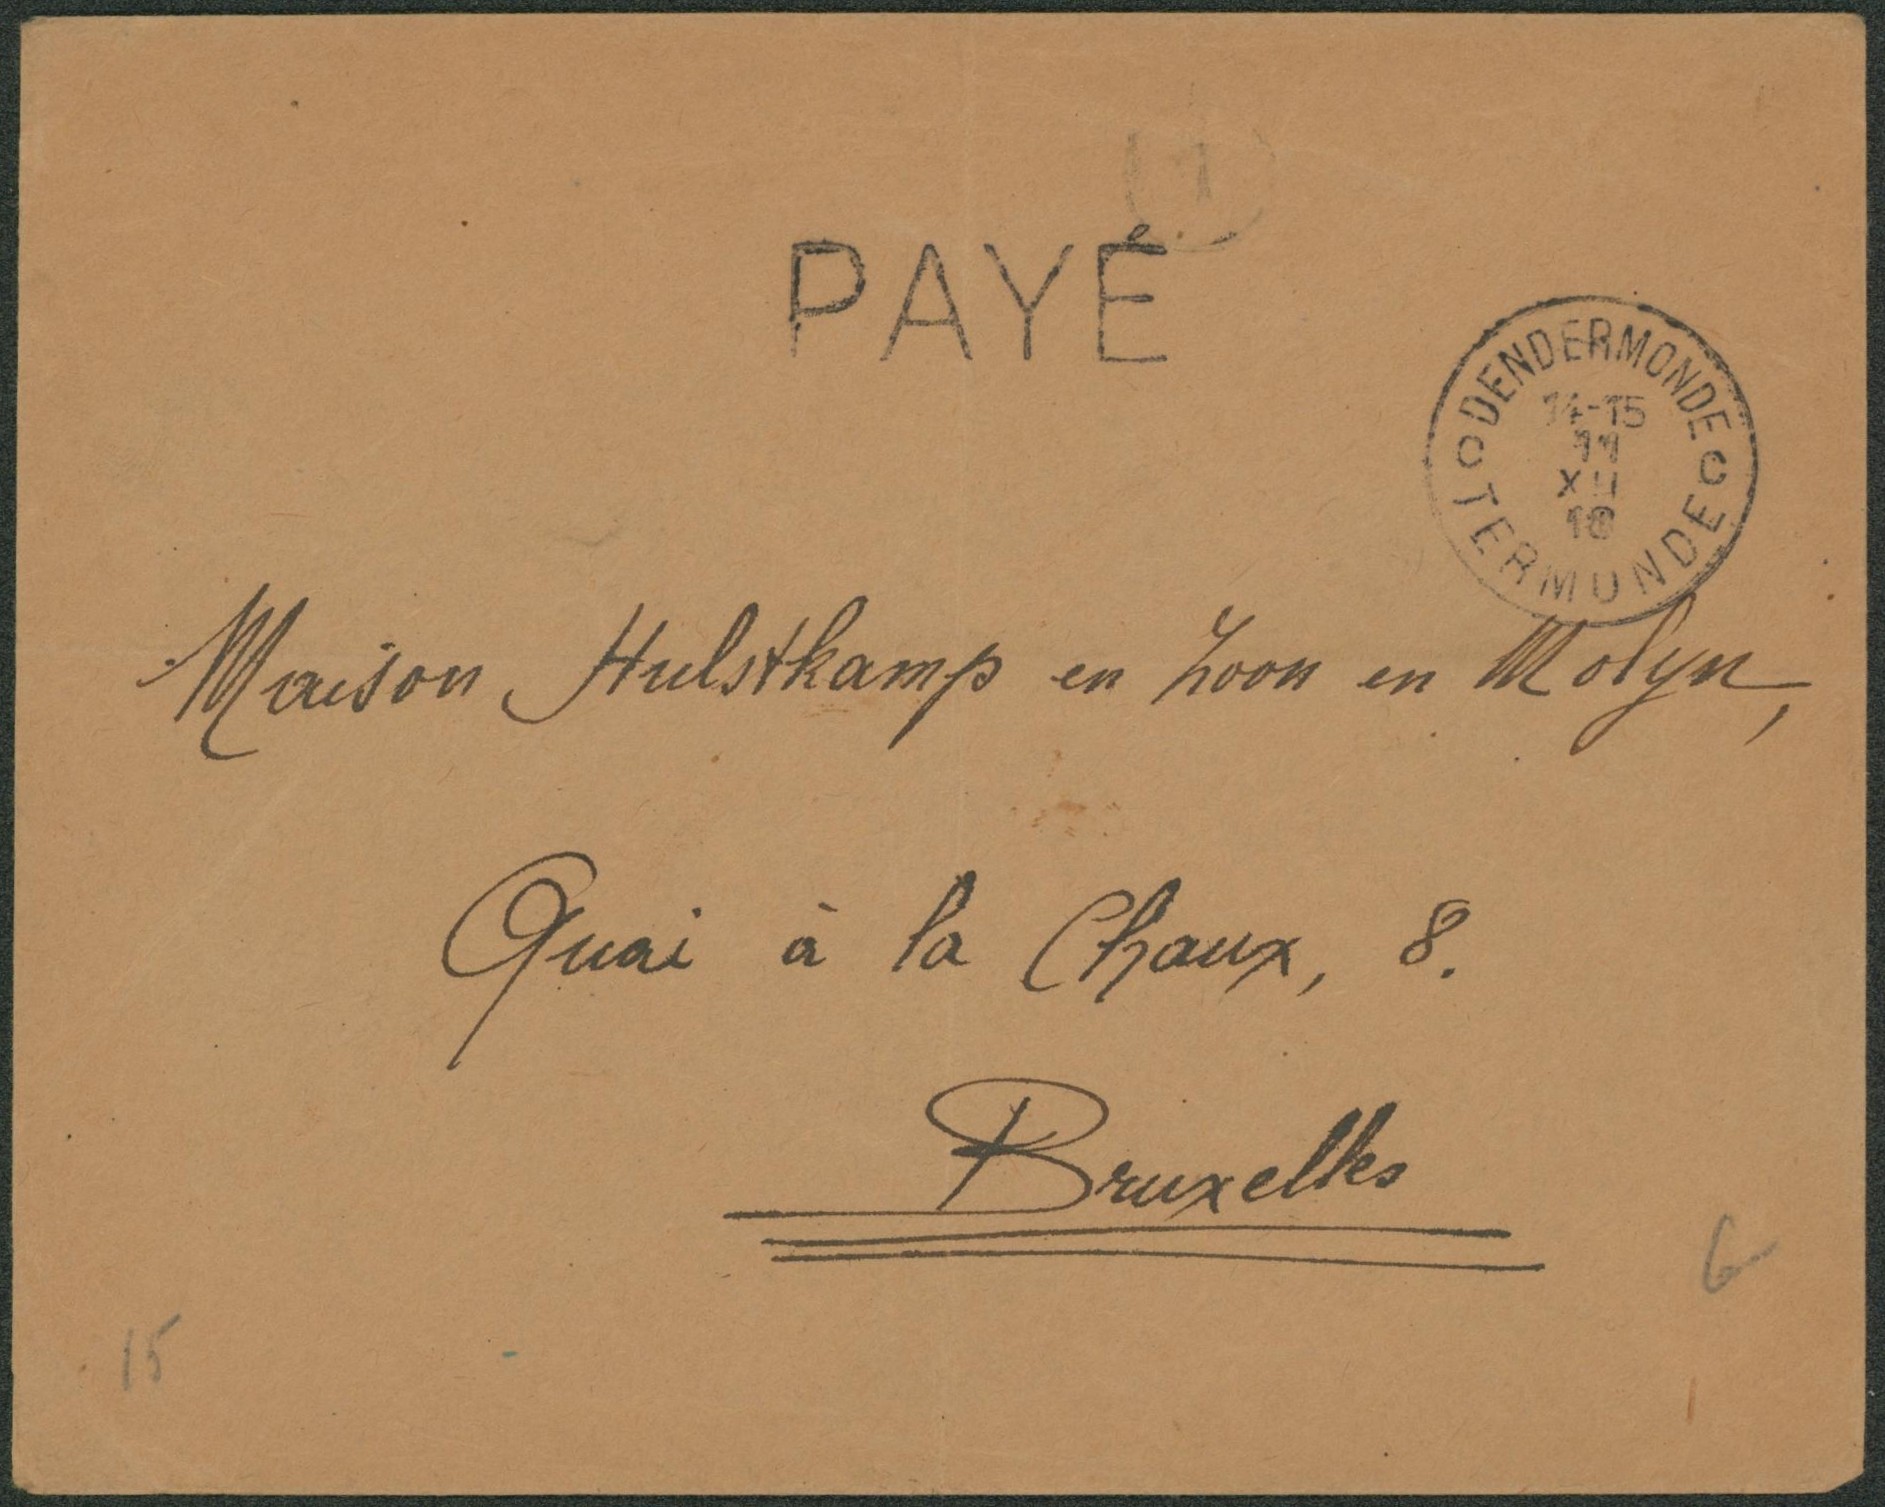 1
PAYÉ
DENDERMONDE
14-15
11
XII
18
C C
TERMONDE
Maison Hulstkamp en Zoon en Molyn,
Quai à la Chaux, 8.
Bruxelles
6
15